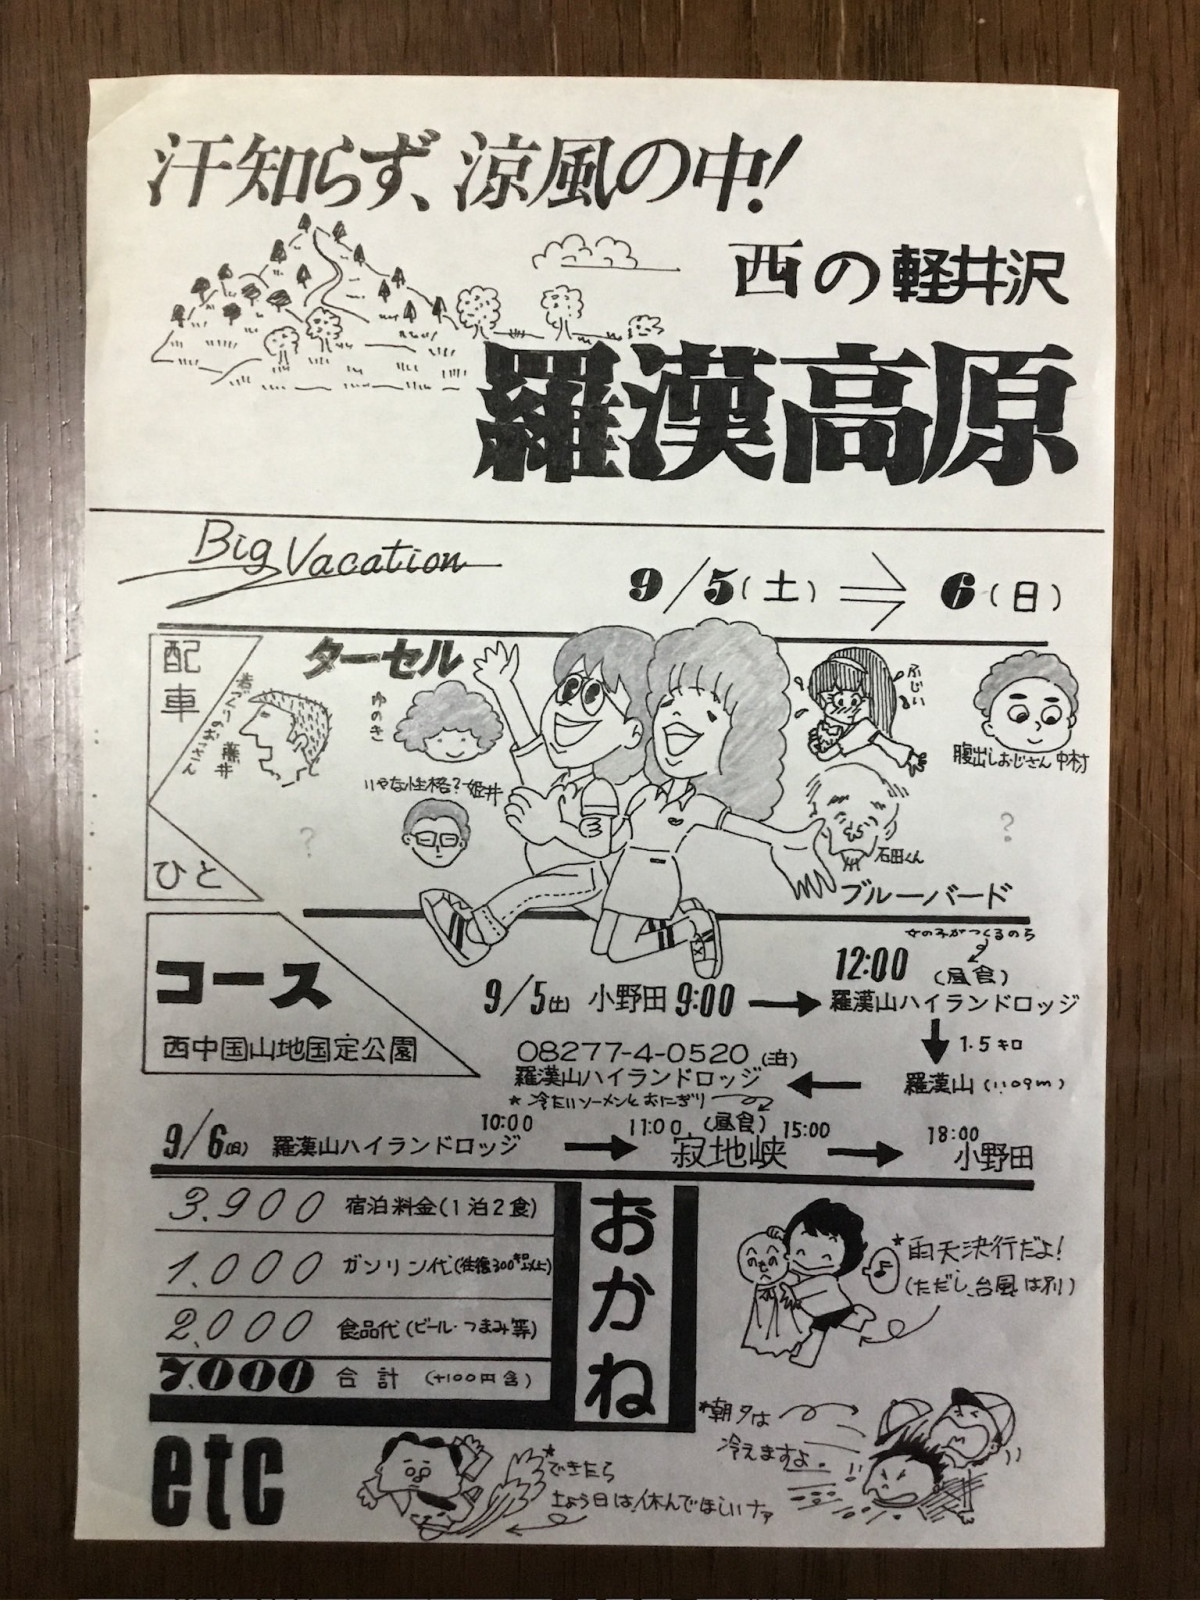 汗知らず、涼風の中!
西の軽井沢
羅漢高原
Big Vacation
9/5(土) ⇒ 6(日)
配車
ひと
ターセル
若づくりのおじさん 藤井
ゆのき
いやな性格?姫井
?
ふじい
腹出しおじさん 中村
石田くん
?
ブルーバード
コース
西中国山地国定公園
女のみがつくるのら
12:00 (昼食)
9/5(土) 小野田 9:00 → 羅漢山ハイランドロッジ
1.5キロ
08277-4-0520 (泊)
羅漢山ハイランドロッジ ← 羅漢山 (1109m)
★冷たいソーメンとおにぎり
10:00 11:00 (昼食) 15:00 18:00
9/6(日) 羅漢山ハイランドロッジ → 寂地峡 → 小野田
おかね
3,900 宿泊料金(1泊2食)
1,000 ガソリン代(往復300キロ以上)
2,000 食品代(ビール・つまみ等)
7,000 合計 (+100円含)
★雨天決行だよ!
(ただし、台風は別)
*朝夕は
冷えますよ。
etc
★できたら
土よう日は休んでほしいナァ